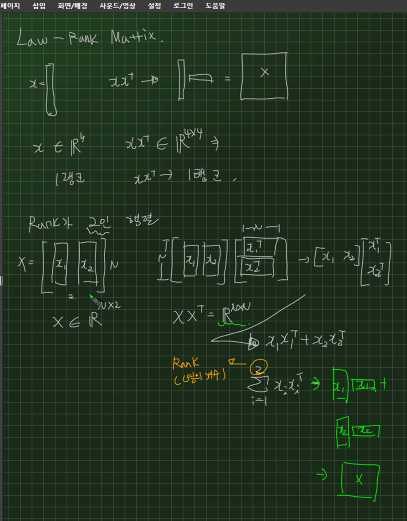 페이지 삽입 화면/배경 사운드/영상 설정 로그인 도움말
Law - Rank Matrix.
x = xxᵀ → = X
x ∈ ℝ⁴ xxᵀ ∈ ℝ⁴ˣ⁴ ⇒
1랭크 xxᵀ → 1랭크.
Rank가 2인 행렬
1-N-1
X = [x₁ x₂] N [x₁ x₂] [x₁ᵀ x₂ᵀ] → [x₁ x₂] [x₁ᵀ x₂ᵀ]
2
X ∈ ℝᴺˣ² XXᵀ = ℝᴺˣᴺ
x₁x₁ᵀ + x₂x₂ᵀ
Rank 2
Σ xᵢxᵢᵀ ⇒ x₁ x₁ +
i=1
x₂ x₂
→ X